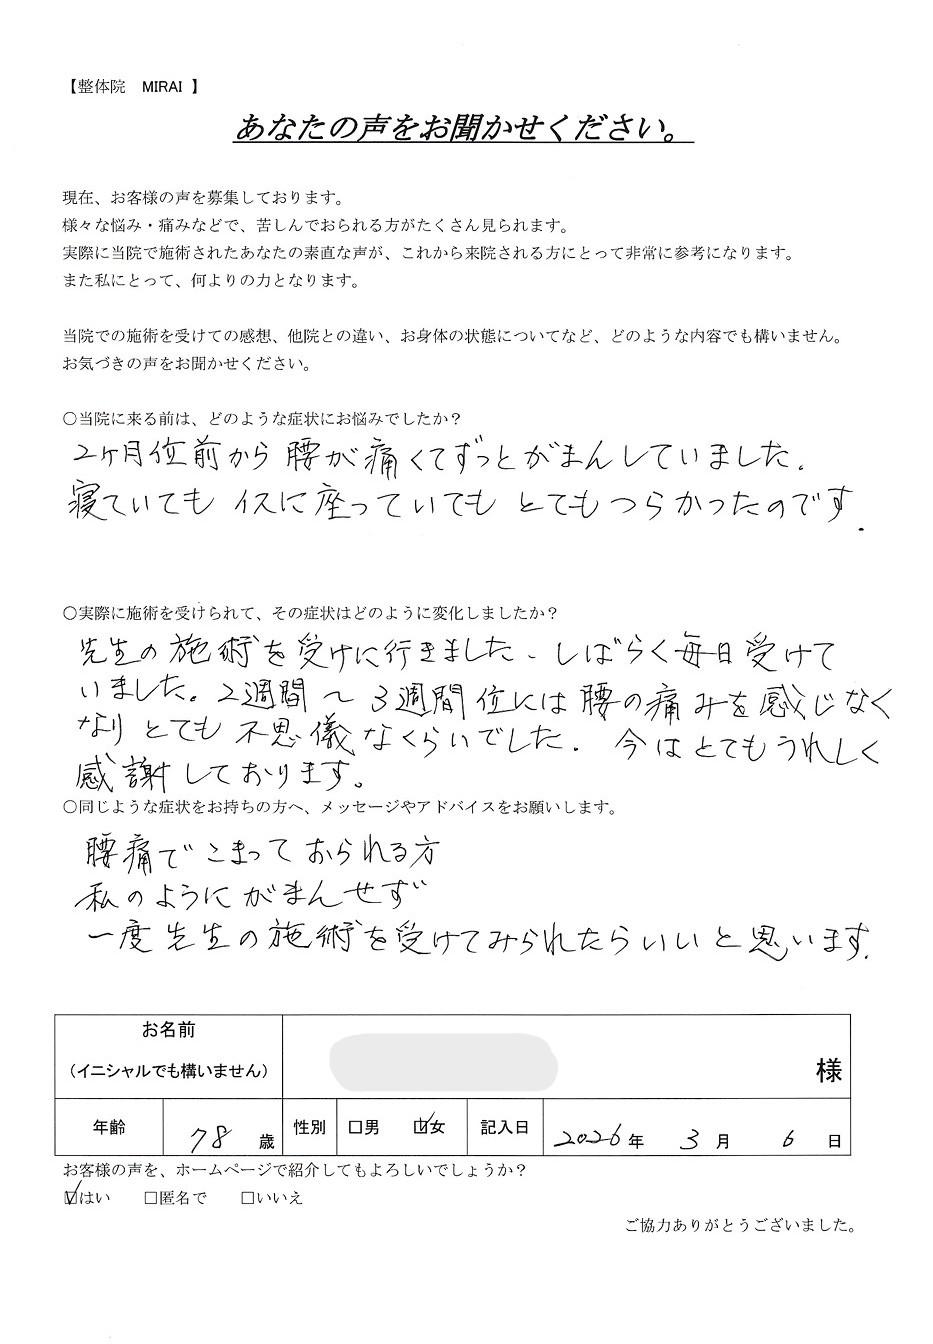 【整体院　MIRAI 】
あなたの声をお聞かせください。
現在、お客様の声を募集しております。
様々な悩み・痛みなどで、苦しんでおられる方がたくさん見られます。
実際に当院で施術されたあなたの素直な声が、これから来院される方にとって非常に参考になります。
また私にとって、何よりの力となります。
当院での施術を受けての感想、他院との違い、お身体の状態についてなど、どのような内容でも構いません。
お気づきの声をお聞かせください。
○当院に来る前は、どのような症状にお悩みでしたか？
2ヶ月位前から腰が痛くてずっとがまんしていました.
寝ていても イスに座っていても とてもつらかったのです.
○実際に施術を受けられて、その症状はどのように変化しましたか？
先生の施術を受けに行きました. しばらく毎日受けて
いました。2週間～3週間位には腰の痛みを感じなく
なり とても 不思儀なくらいでした. 今はとてもうれしく
感謝しております。
○同じような症状をお持ちの方へ、メッセージやアドバイスをお願いします。
腰痛で こまって おられる方
私のように がまんせず
一度先生の施術を受けてみられたらいいと思います.
お名前
（イニシャルでも構いません）
様
年齢 78 歳 性別 □男 ☑女 記入日 2026 年 3 月 6 日
お客様の声を、ホームページで紹介してもよろしいでしょうか？
☑はい　□匿名で　□いいえ
ご協力ありがとうございました。